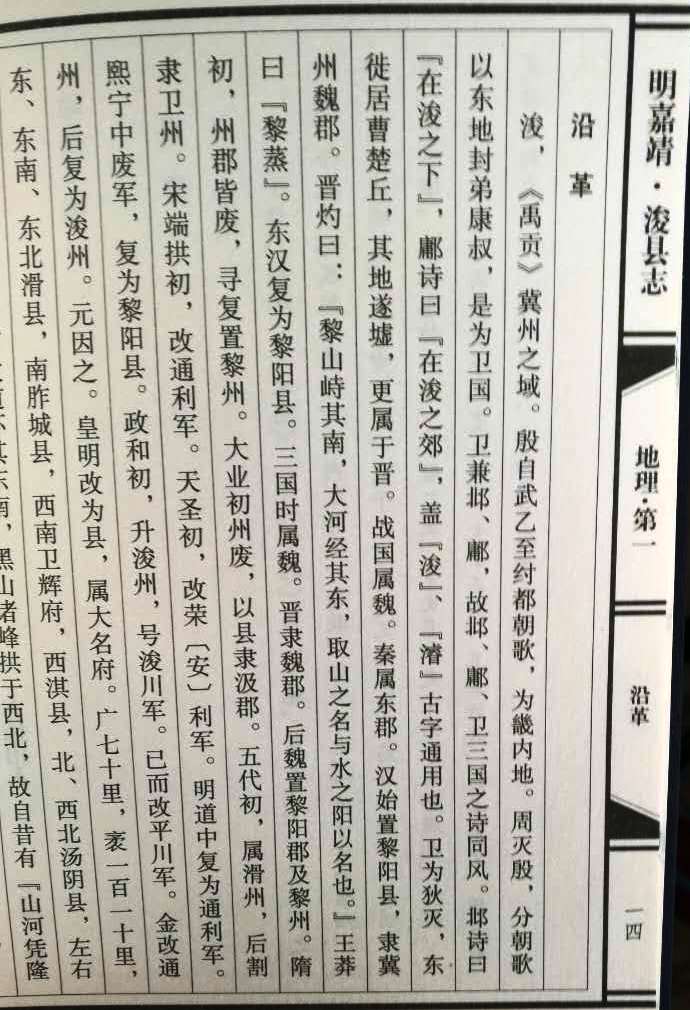 明嘉靖·浚县志
地理·第一
沿革
一四
沿革
浚，《禹贡》冀州之域。殷自武乙至纣都朝歌，为畿内地。周灭殷，分朝歌
以东地封弟康叔，是为卫国。卫兼邶、鄘，故邶、鄘、卫三国之诗同风。邶诗曰
『在浚之下』，鄘诗曰『在浚之郊』，盖『浚』、『濬』古字通用也。卫为狄灭，东
徙居曹楚丘，其地遂墟，更属于晋。战国属魏。秦属东郡。汉始置黎阳县，隶冀
州魏郡。晋灼曰：『黎山峙其南，大河经其东，取山之名与水之阳以名也。』王莽
曰『黎蒸』。东汉复为黎阳县。三国时属魏。晋隶魏郡。后魏置黎阳郡及黎州。隋
初，州郡皆废，寻复置黎州。大业初州废，以县隶汲郡。五代初，属滑州，后割
隶卫州。宋端拱初，改通利军。天圣初，改荣〔安〕利军。明道中复为通利军。
熙宁中废军，复为黎阳县。政和初，升浚州，号浚川军。已而改平川军。金改通
州，后复为浚州。元因之。皇明改为县，属大名府。广七十里，袤一百一十里，
东、东南、东北滑县，南胙城县，西南卫辉府，西淇县，北、西北汤阴县，左右
其东南，黑山诸峰拱于西北，故自昔有『山河凭隆